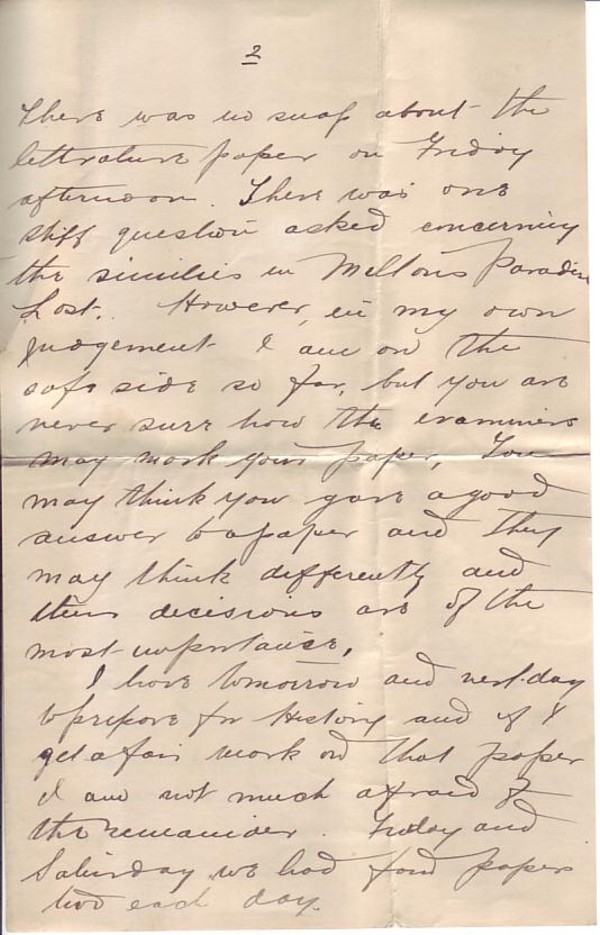 2
There was no snap about the
letterature paper on Friday
afternoon. There was one
stiff question asked concerning
the similies in Miltons Paradise
Lost. However, in my own
judgement I am on the
safe side so far, but you are
never sure how the examiners
may mark your paper, You
may think you gave a good
answer to a paper and they
may think differently and
their decisions are of the
most importance,
I have tomorrow and next day
to prepare for History and if I
get a fair mark on that paper
I am not much afraid of
the remainder. Friday and
Saturday we had four papers
two each day.